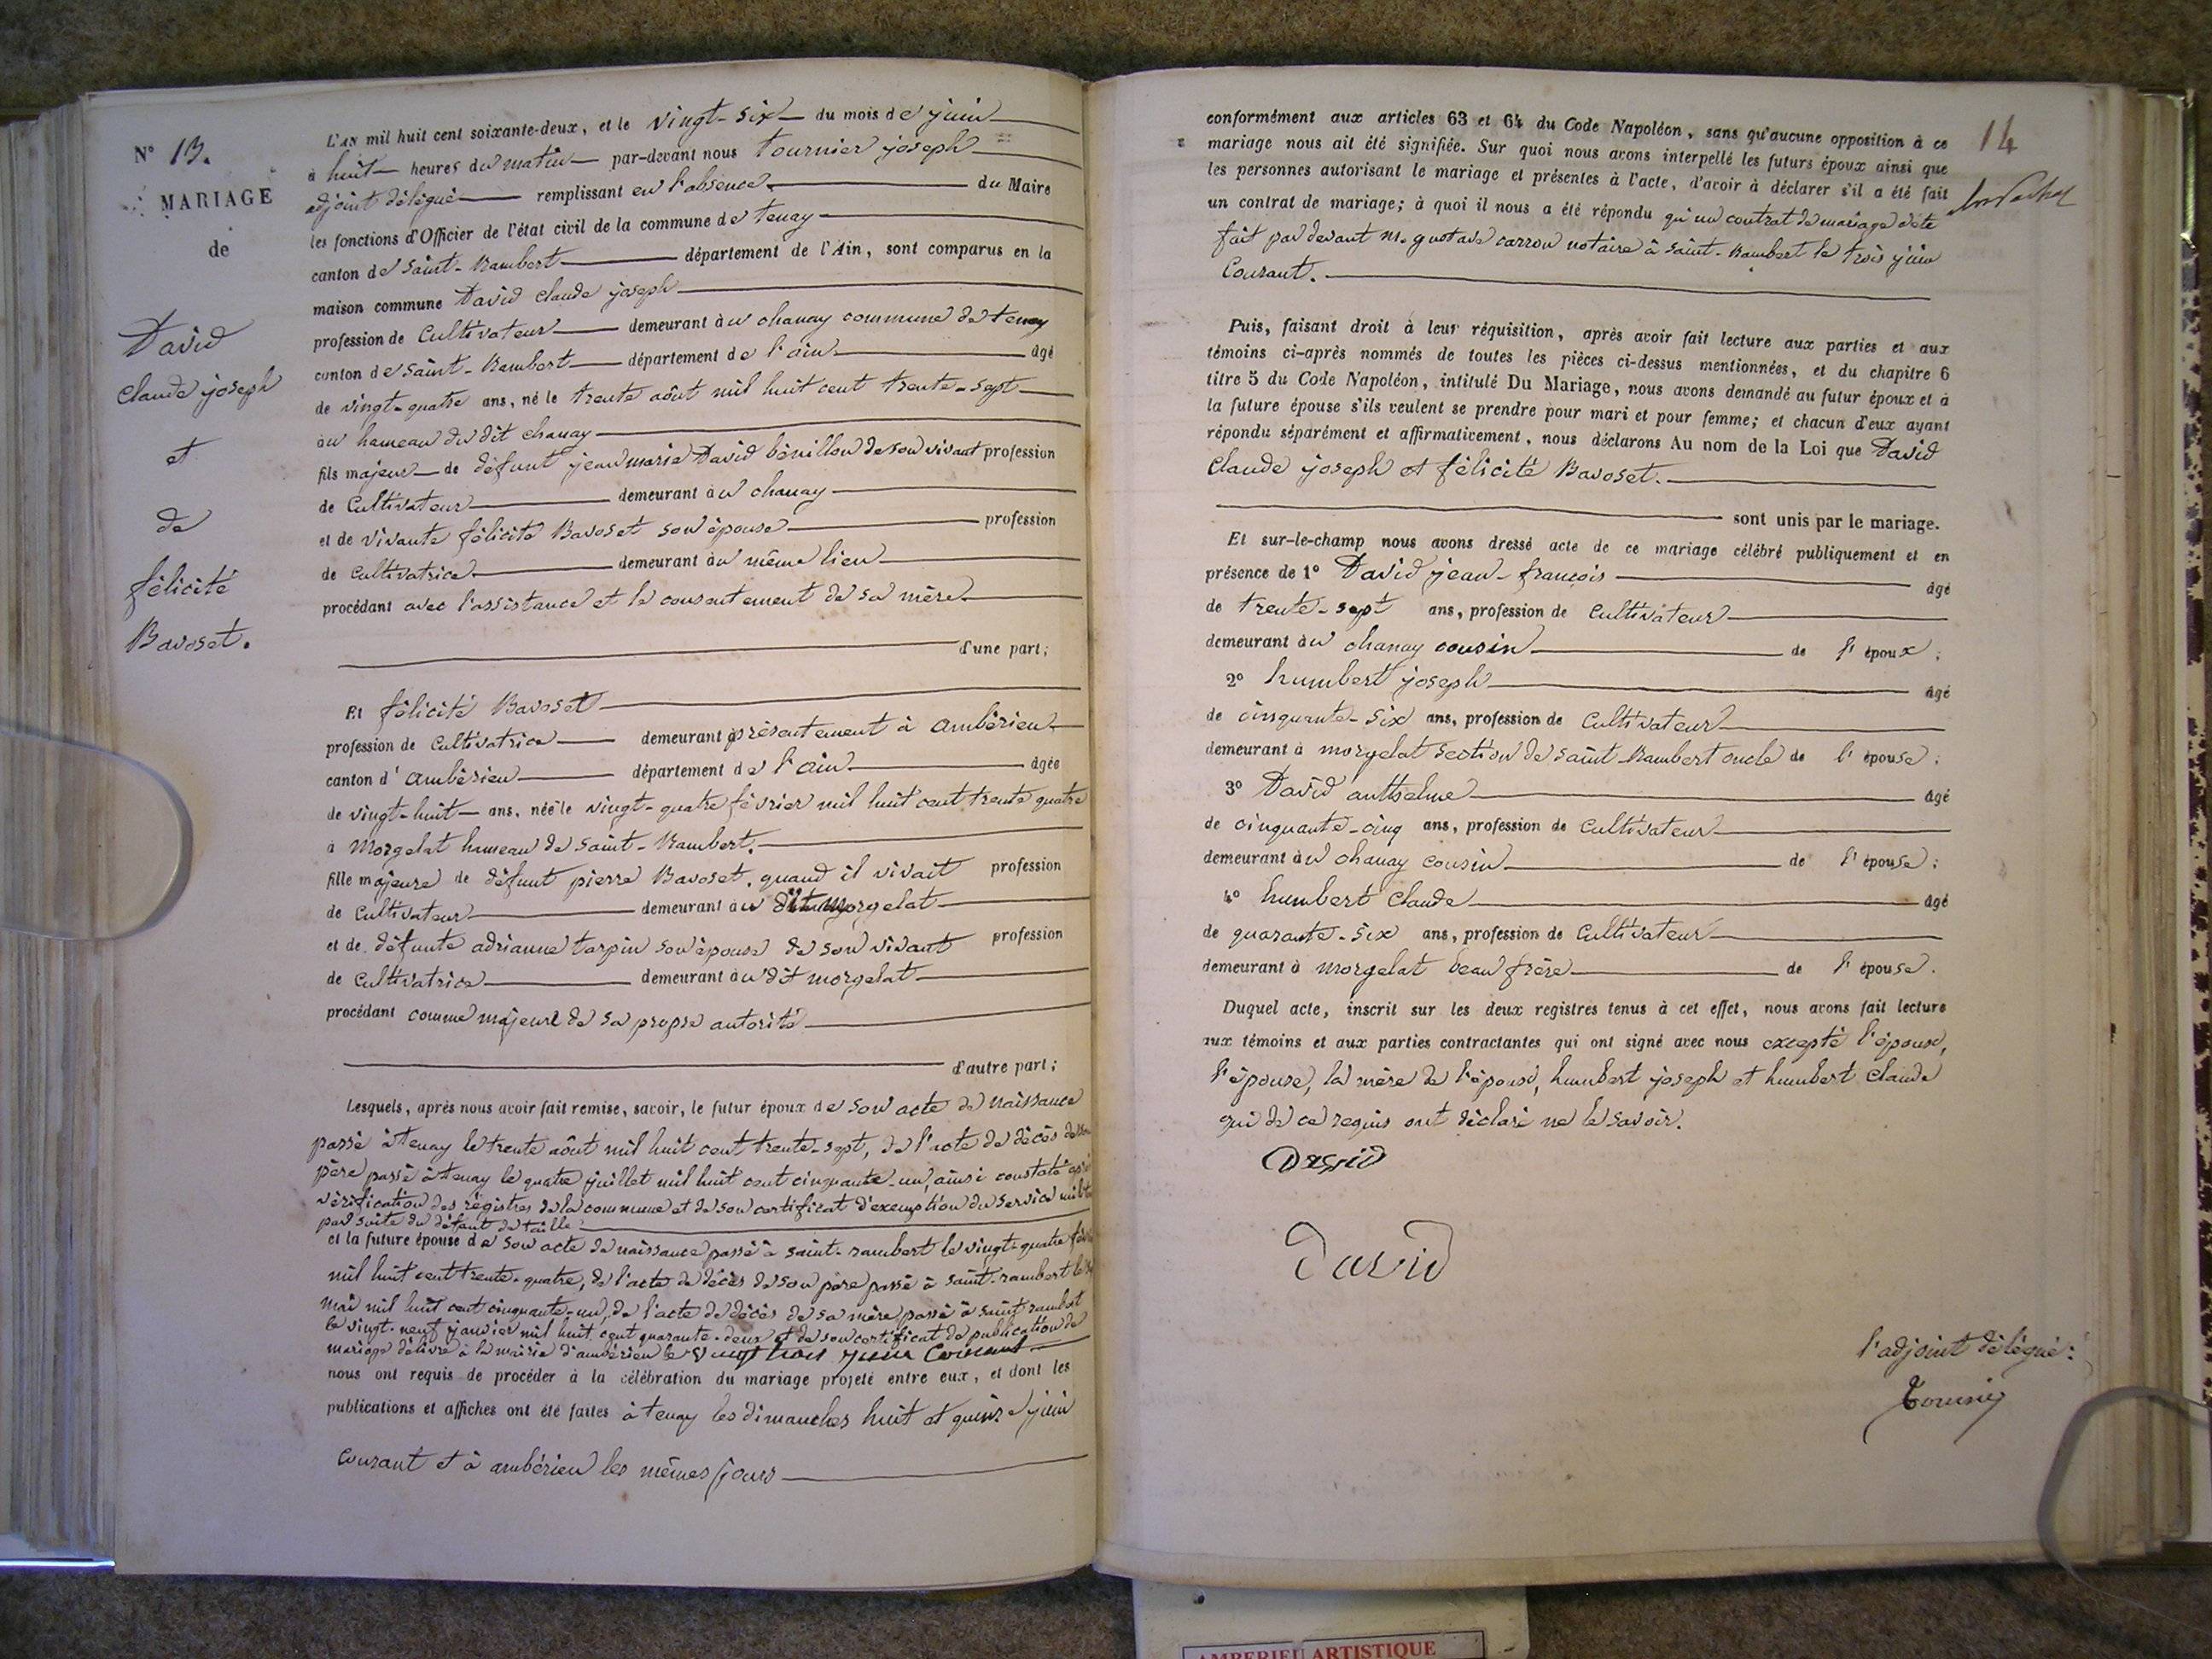 N° 13.
MARIAGE
de
David
Claude joseph
et
de
félicité
Bavoset.
L'AN mil huit cent soixante-deux, et le vingt-six du mois de juin
à huit heures du matin par-devant nous Tournier joseph
adjoint délégué remplissant en l'absence du Maire
les fonctions d'Officier de l'état civil de la commune de tenay
canton de Saint-Rambert département de l'Ain, sont comparus en la
maison commune David Claude joseph
profession de Cultivateur demeurant à chanay commune de tenay
canton de Saint-Rambert département de l'ain âgé
de vingt-quatre ans, né le trente août mil huit cent trente-sept
au hameau du dit chanay
fils majeur de défunt jean marie David bénillon de son vivant profession
de Cultivateur demeurant à chanay
et de vivante félicité Bavoset son épouse profession
de Cultivatrice demeurant au même lieu
procédant avec l'assistance et le consentement de sa mère
d'une part;
Et félicité Bavoset
profession de Cultivatrice demeurant présentement à ambérieu
canton d'ambérieu département de l'ain âgée
de vingt-huit ans, née le vingt-quatre février mil huit cent trente quatre
à Morgelat hameau de Saint-Rambert.
fille majeure de défunt pierre Bavoset, quand il vivait profession
de Cultivateur demeurant au dit Morgelat
et de défunte adrianne tarpin son épouse de son vivant profession
de Cultivatrice demeurant au dit morgelat
procédant comme majeure de sa propre autorité
d'autre part;
Lesquels, après nous avoir fait remise, savoir, le futur époux de son acte de naissance
passé à tenay le trente août mil huit cent trente-sept, de l'acte de décès de son
père passé à tenay le quatre juillet mil huit cent cinquante-un, ainsi constaté
vérification des régistres de la commune et de son certificat d'exemption du service
par suite du défaut de taille
et la future épouse de son acte de naissance passé à saint-rambert le vingt-quatre
mil huit cent trente-quatre, de l'acte de décès de son père passé à saint-rambert
mai mil huit cent cinquante-un, de l'acte de décès de sa mère passé à saint rambert
le vingt-neuf janvier mil huit cent quarante-deux et de son certificat de publication de
mariage délivré à la mairie d'ambérieu le vingt trois juin Courant
nous ont requis de procéder à la célébration du mariage projeté entre eux, et dont les
publications et affiches ont été faites à tenay les dimanches huit et quinze juin
courant et à ambérieu les mêmes jours
14
conformément aux articles 63 et 64 du Code Napoléon, sans qu'aucune opposition à ce
mariage nous ait été signifiée. Sur quoi nous avons interpellé les futurs époux ainsi que
les personnes autorisant le mariage et présentes à l'acte, d'avoir à déclarer s'il a été fait
un contrat de mariage; à quoi il nous a été répondu qu'un contrat de mariage a été
fait par devant m.e gustave carron notaire à saint-Rambert le trois juin
Courant.
Puis, faisant droit à leur réquisition, après avoir fait lecture aux parties et aux
témoins ci-après nommés de toutes les pièces ci-dessus mentionnées, et du chapitre 6
titre 5 du Code Napoléon, intitulé Du Mariage, nous avons demandé au futur époux et à
la future épouse s'ils veulent se prendre pour mari et pour femme; et chacun d'eux ayant
répondu séparément et affirmativement, nous déclarons Au nom de la Loi que David
Claude joseph et félicité Bavoset.
sont unis par le mariage.
Et sur-le-champ nous avons dressé acte de ce mariage célébré publiquement et en
présence de 1° David jean-françois âgé
de trente-sept ans, profession de Cultivateur
demeurant à chanay cousin de l'époux;
2° humbert joseph âgé
de cinquante-six ans, profession de Cultivateur
demeurant à morgelat section de saint-Rambert oncle de l'épouse;
3° David anthelme âgé
de cinquante-cinq ans, profession de Cultivateur
demeurant à chanay cousin de l'épouse;
4° humbert Claude âgé
de quarante-six ans, profession de Cultivateur
demeurant à Morgelat beau frère de l'épouse.
Duquel acte, inscrit sur les deux registres tenus à cet effet, nous avons fait lecture
aux témoins et aux parties contractantes qui ont signé avec nous excepté l'époux,
l'épouse, la mère de l'époux, humbert joseph et humbert Claude
qui de ce requis ont déclaré ne le savoir.
David
David
l'adjoint délégué:
Tournier
AMBERIEU ARTISTIQUE